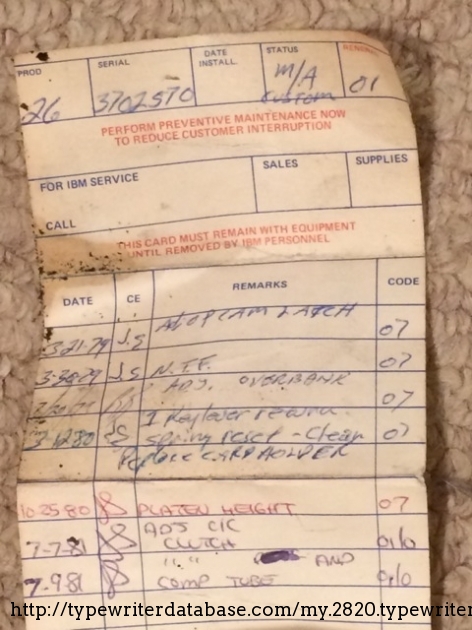 PROD SERIAL DATE INSTALL. STATUS
26 3702570 M/A 01
Custom
PERFORM PREVENTIVE MAINTENANCE NOW
TO REDUCE CUSTOMER INTERRUPTION
FOR IBM SERVICE SALES SUPPLIES
CALL
THIS CARD MUST REMAIN WITH EQUIPMENT
UNTIL REMOVED BY IBM PERSONNEL
DATE CE REMARKS CODE
3-21-79 J.S CAM LATCH 07
3-30-79 J.S N.T.F. 07
ADJ. OVERBANK
07
1 Keylever return
3-12-80 spring reset - Clean 07
Replace CARD HOLDER
10-25-80 PLATEN HEIGHT 07
ADJ C/C
7-7-81 CLUTCH
" " AND
7-9-81 COMP TUBE
http://typewriterdatabase.com/my.2820.typewriter